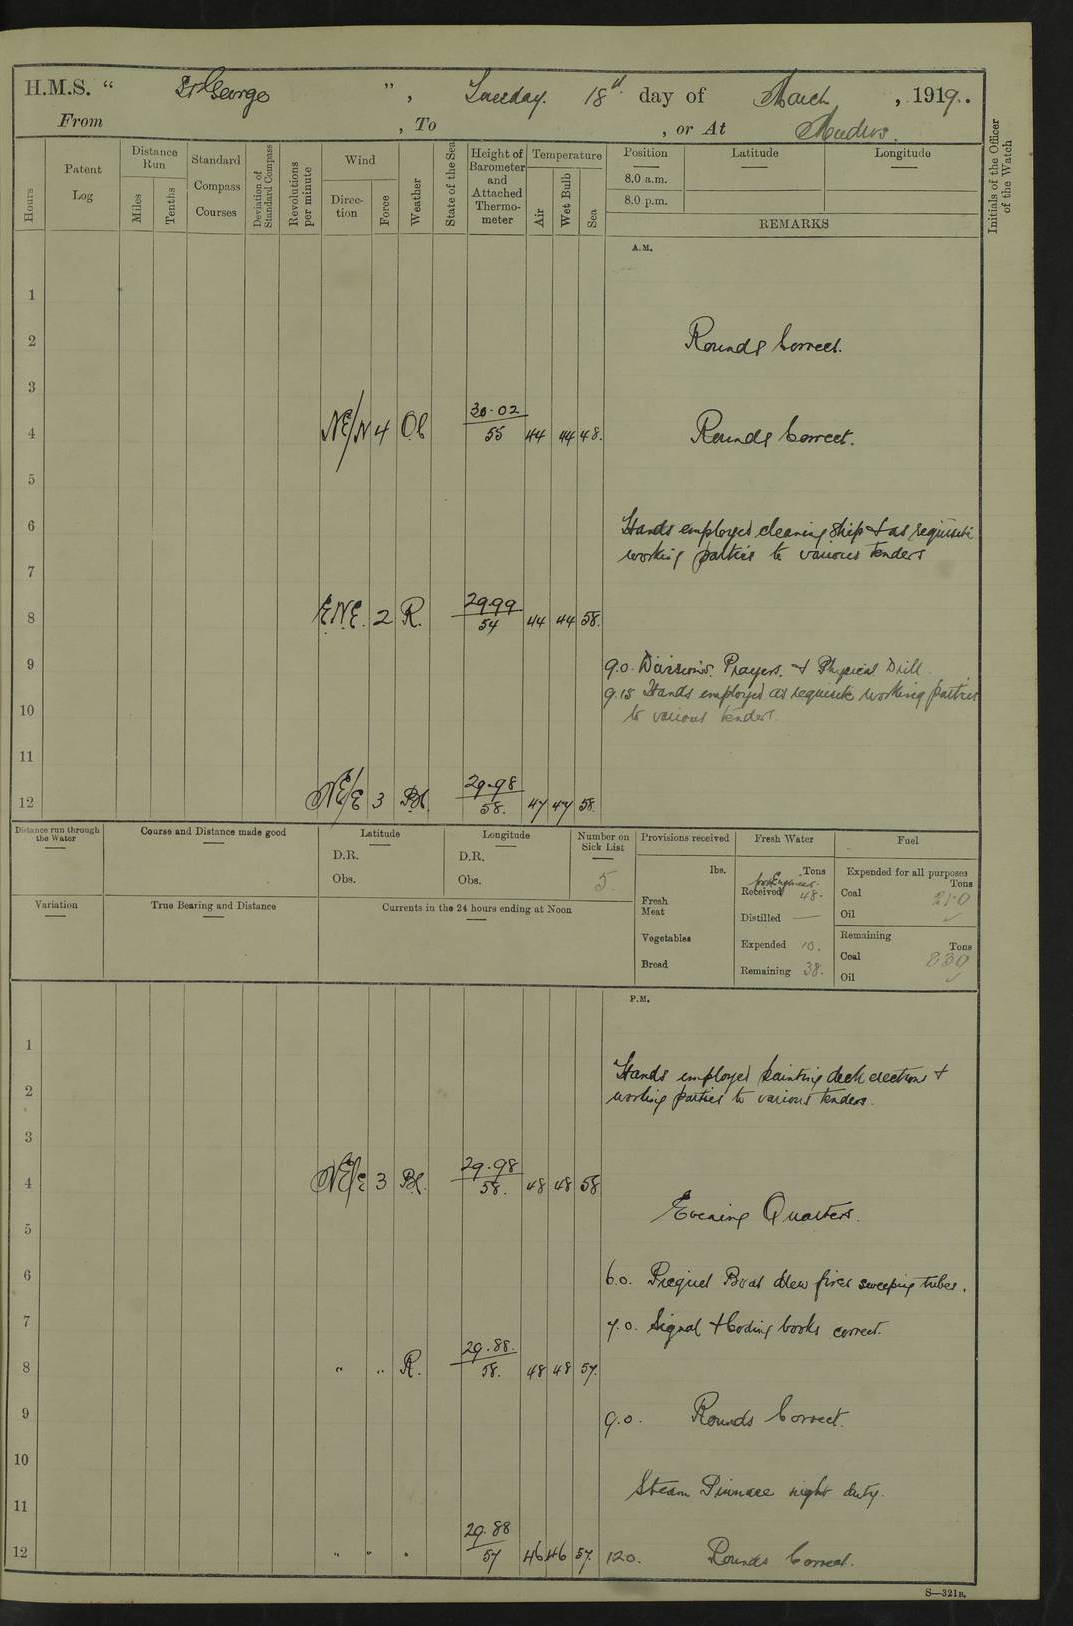 H.M.S. " St George ", Tuesday. 18th day of March, 1919..
From , To , or At Mudros.
Hours
Patent Log
Distance Run
Miles
Tenths
Standard Compass Courses
Deviation of Standard Compass
Revolutions per minute
Wind
Direction
Force
Weather
State of the Sea
Height of Barometer and Attached Thermometer
Temperature
Air
Wet Bulb
Sea
Position
8.0 a.m.
8.0 p.m.
Latitude
Longitude
REMARKS
Initials of the Officer of the Watch
A.M.
1
2 Rounds Correct.
3
4 NE/N 4 Oc 30.02/55 44 44 48. Rounds Correct.
5
6 Hands employed cleaning ship & as requisite
working parties to various tenders
7
8 E.N.E. 2 R. 29.99/54 44 44 58.
9 9.0. Divisions. Prayers. & Physical Drill.
9.15 Hands employed as requisite working parties
10 to various tenders.
11
12 NE/E 3 Bc. 29.98/58. 47 47 58.
Distance run through the Water
Course and Distance made good
Latitude
D.R.
Obs.
Longitude
D.R.
Obs.
Number on Sick List
5.
Provisions received
lbs.
Fresh Meat
Vegetables
Bread
Fresh Water
Tons
Received 48.
Distilled —
Expended 10.
Remaining 38.
Fuel
Expended for all purposes
Tons
Coal
Oil ✓
Remaining
Tons
Coal 830
Oil ✓
Variation
True Bearing and Distance
Currents in the 24 hours ending at Noon
P.M.
1
Hands employed painting deck erections &
2 working parties to various tenders.
3
4 NE/E 3 Bc. 29.98/58. 48 48 58
Evening Quarters.
5
6 6.0. Picquet Boat drew fires sweeping tubes.
7 7.0. Signal & Coding books correct.
8 " " R. 29.88./58. 48 48 57.
9 9.0. Rounds Correct.
10
Steam Pinnace night duty.
11
12 " " " 29.88/57 46 46 57. 12.0. Rounds Correct.
S—321B.